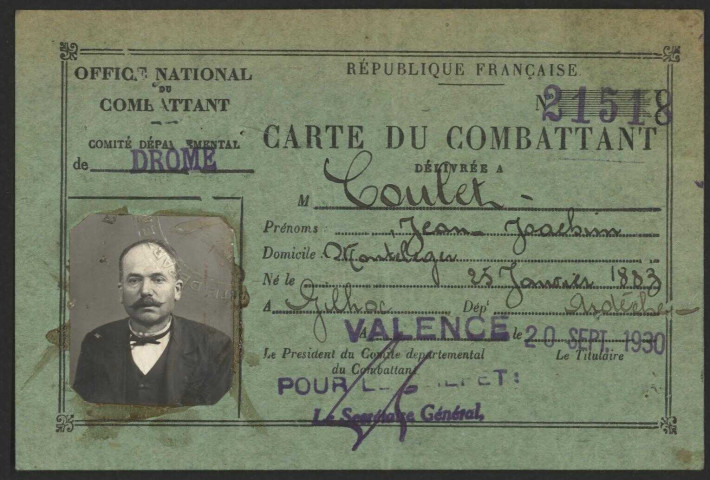 OFFICE NATIONAL
DU
COMBATTANT
COMITÉ DÉPARTEMENTAL
de DROME
RÉPUBLIQUE FRANÇAISE
N° 21518
CARTE DU COMBATTANT
DÉLIVRÉE A
M Coulet
Prénoms : Jean Joachim
Domicile : Monteleger
Né le 25 Janvier
A Gilhoc Dépt Ardèche
A VALENCE le 20 SEPT. 1930
Le President du Comité departemental Le Titulaire
du Combattant
POUR LE PREFET :
Le Secrétaire Général,